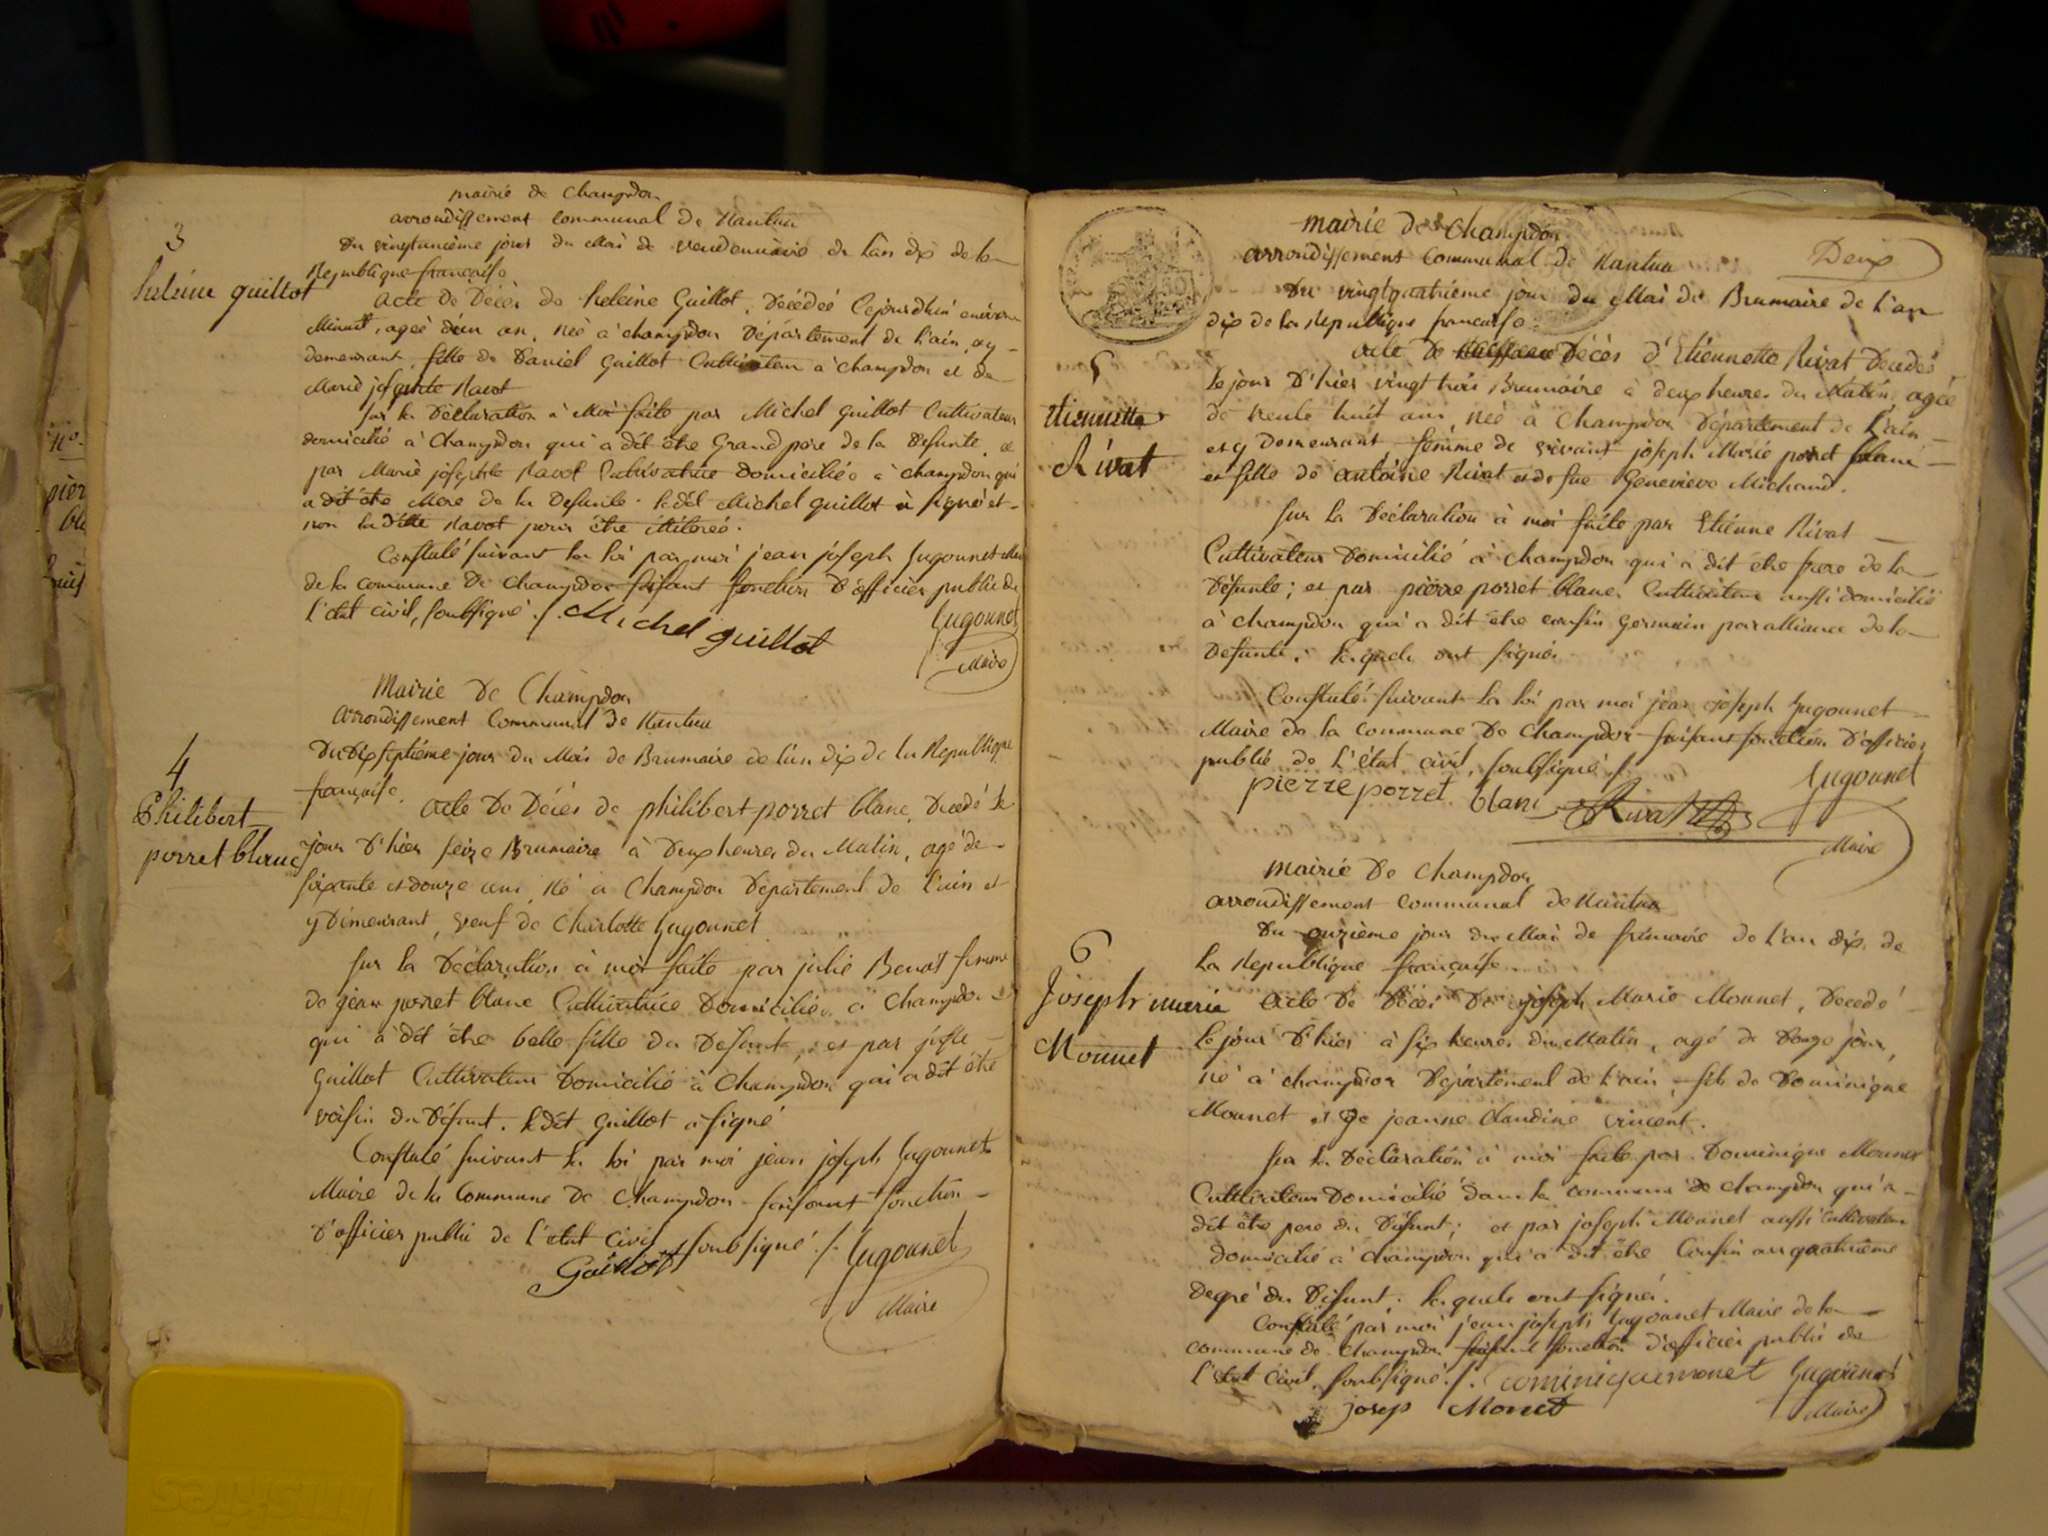 mairie de Champdor
arrondissement communal de Nantua
3
Du vingtunième jour du Mois de vendemiaire de l'an dix de la
Republique française
heleine guillot
acte de Décès de heleine Guillot, Decédeé cejourdhui environ
Minuit, ageé d'un an, neé à champdor Département de l'ain, ay
demeurant, fille de Daniel Guillot Cultivateur à champdor et de
Marie josephte Ravot
sur la Déclaration à Moi faite par Michel guillot Cultivateur
domicilié à Champdor qui a dit être Grand pere de la Defunte, et
par Marie josephte Ravot Cultivatrice domiciliée à champdor qui
a dit être Mere de la Defunte. ledit Michel guillot à signé et
non la ditte Ravot pour être illitereé.
Constaté suivant la loi par moi jean joseph Jugounet Maire
de la commune De Champdor faisant fonction D'officier public de
l'etat civil, soubsigné ./. Michel guillot Jugounet
Maire
Mairie De Champdor
arrondissement Communal de Nantua
4
Du Dix septième jour du Mois de Brumaire de l'an dix de la Republique
française.
Philibert
porret blanc
acte De Décès de philibert porret blanc, Decedé le
jour D'hier seize Brumaire à Deux heures du Matin, agé de
soixante et douze ans, né à Champdor Département de l'ain et
y Demeurant, veuf de Charlotte Jugounet
sur la Déclaration à moi faite par julie Benoit femme
de jean porret blanc Cultivatrice Domiciliée à Champdor
qui à dit être belle fille du Defunt, et par
Guillot Cultivateur Domicilié à Champdor qui a dit être
voisin du Défunt. ledit Guillot à signé
Constaté suivant la loi par moi jean joseph Jugounet
Maire de la Commune De Champdor faisant fonction
D'officier public de l'etat civil soubsigné ./. Jugounet
Guillot
Maire
mairie de Champdor
Deux
arrondissement Communal de Nantua
Du vingtquatrième jour du Mois de Brumaire de l'an
dix de la Republique française
5
etiennette
Rivat
acte De Décès d'Etiennette Rivat Decedeé
le jour D'hier vingt trois Brumaire à deux heures du Matin, ageé
de trente huit ans, neé à Champdor Département de l'ain
et y Demeurant femme de vivant joseph Marie porret blanc
et fille de antoine Rivat et de fue Genevieve Michaud.
sur la Declaration à moi faite par Etienne Rivat
Cultivateur Domicilié à Champdor qui a dit être frere de la
Défunte; et par pierre porret blanc Cultivateur aussi domicilié
à champdor qui a dit être cousin Germain par alliance de la
Defunte, lesquels ont signés
Constaté suivant la loi par moi jean joseph Jugounet
Maire de la commune De Champdor faisant fonction D'officier
public de l'état civil, soubsigné ./.
pierre porret blanc Rivat Jugounet
Maire
mairie De Champdor
arrondissement communal de Nantua
Du onzième jour du Mois de frimaire de l'an dix de
la Republique française
6
Joseph marie
Monnet
acte De Décès De joseph Marie Monnet, Decedé
le jour D'hier à six heures du Matin, agé de Douze jours,
né à champdor Département de l'ain, fils de Dominique
Monnet et De jeanne Claudine vincent.
sur la Déclaration à moi faite par Dominique Monnet
Cultivateur Domicilié dans la commune de champdor qui a
dit être pere du Défunt; et par joseph Monnet aussi Cultivateur
domicilié à Champdor qui a dit être Cousin au quatrième
degré du Défunt, lesquels ont signés.
Constaté par moi jean joseph Jugounet Maire de la
commune de Champdor faisant fonction d'officier public de
l'etat Civil, soubsigné ./. dominique monet Jugounet
josep Monet
Maire